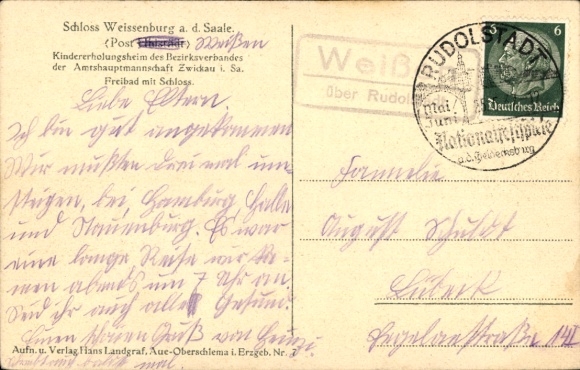 Schloss Weissenburg a. d. Saale.
(Post Uhlstädt) Weißen
Kindererholungsheim des Bezirksverbandes
der Amtshauptmannschaft Zwickau i. Sa.
Freibad mit Schloss.
Liebe Eltern.
Ich bin gut angekommen
Wir mußten dreimal um-
steigen, bei Hamburg, Halle
und Naumburg. Es war
eine lange Reise wir ka-
men abends um 7 Uhr an.
Seid ihr auch alle Gesund.
Einen schönen Gruß von
mal.
Aufn. u. Verlag Hans Landgraf, Aue-Oberschlema i. Erzgeb. Nr.
Weiß
über Rudol
RUDOLSTADT
Mai
Juni
Nationalfestspiele
a.d. Heidecksburg
6
Deutsches Reich
Familie
August Schuldt
Lübeck
14II